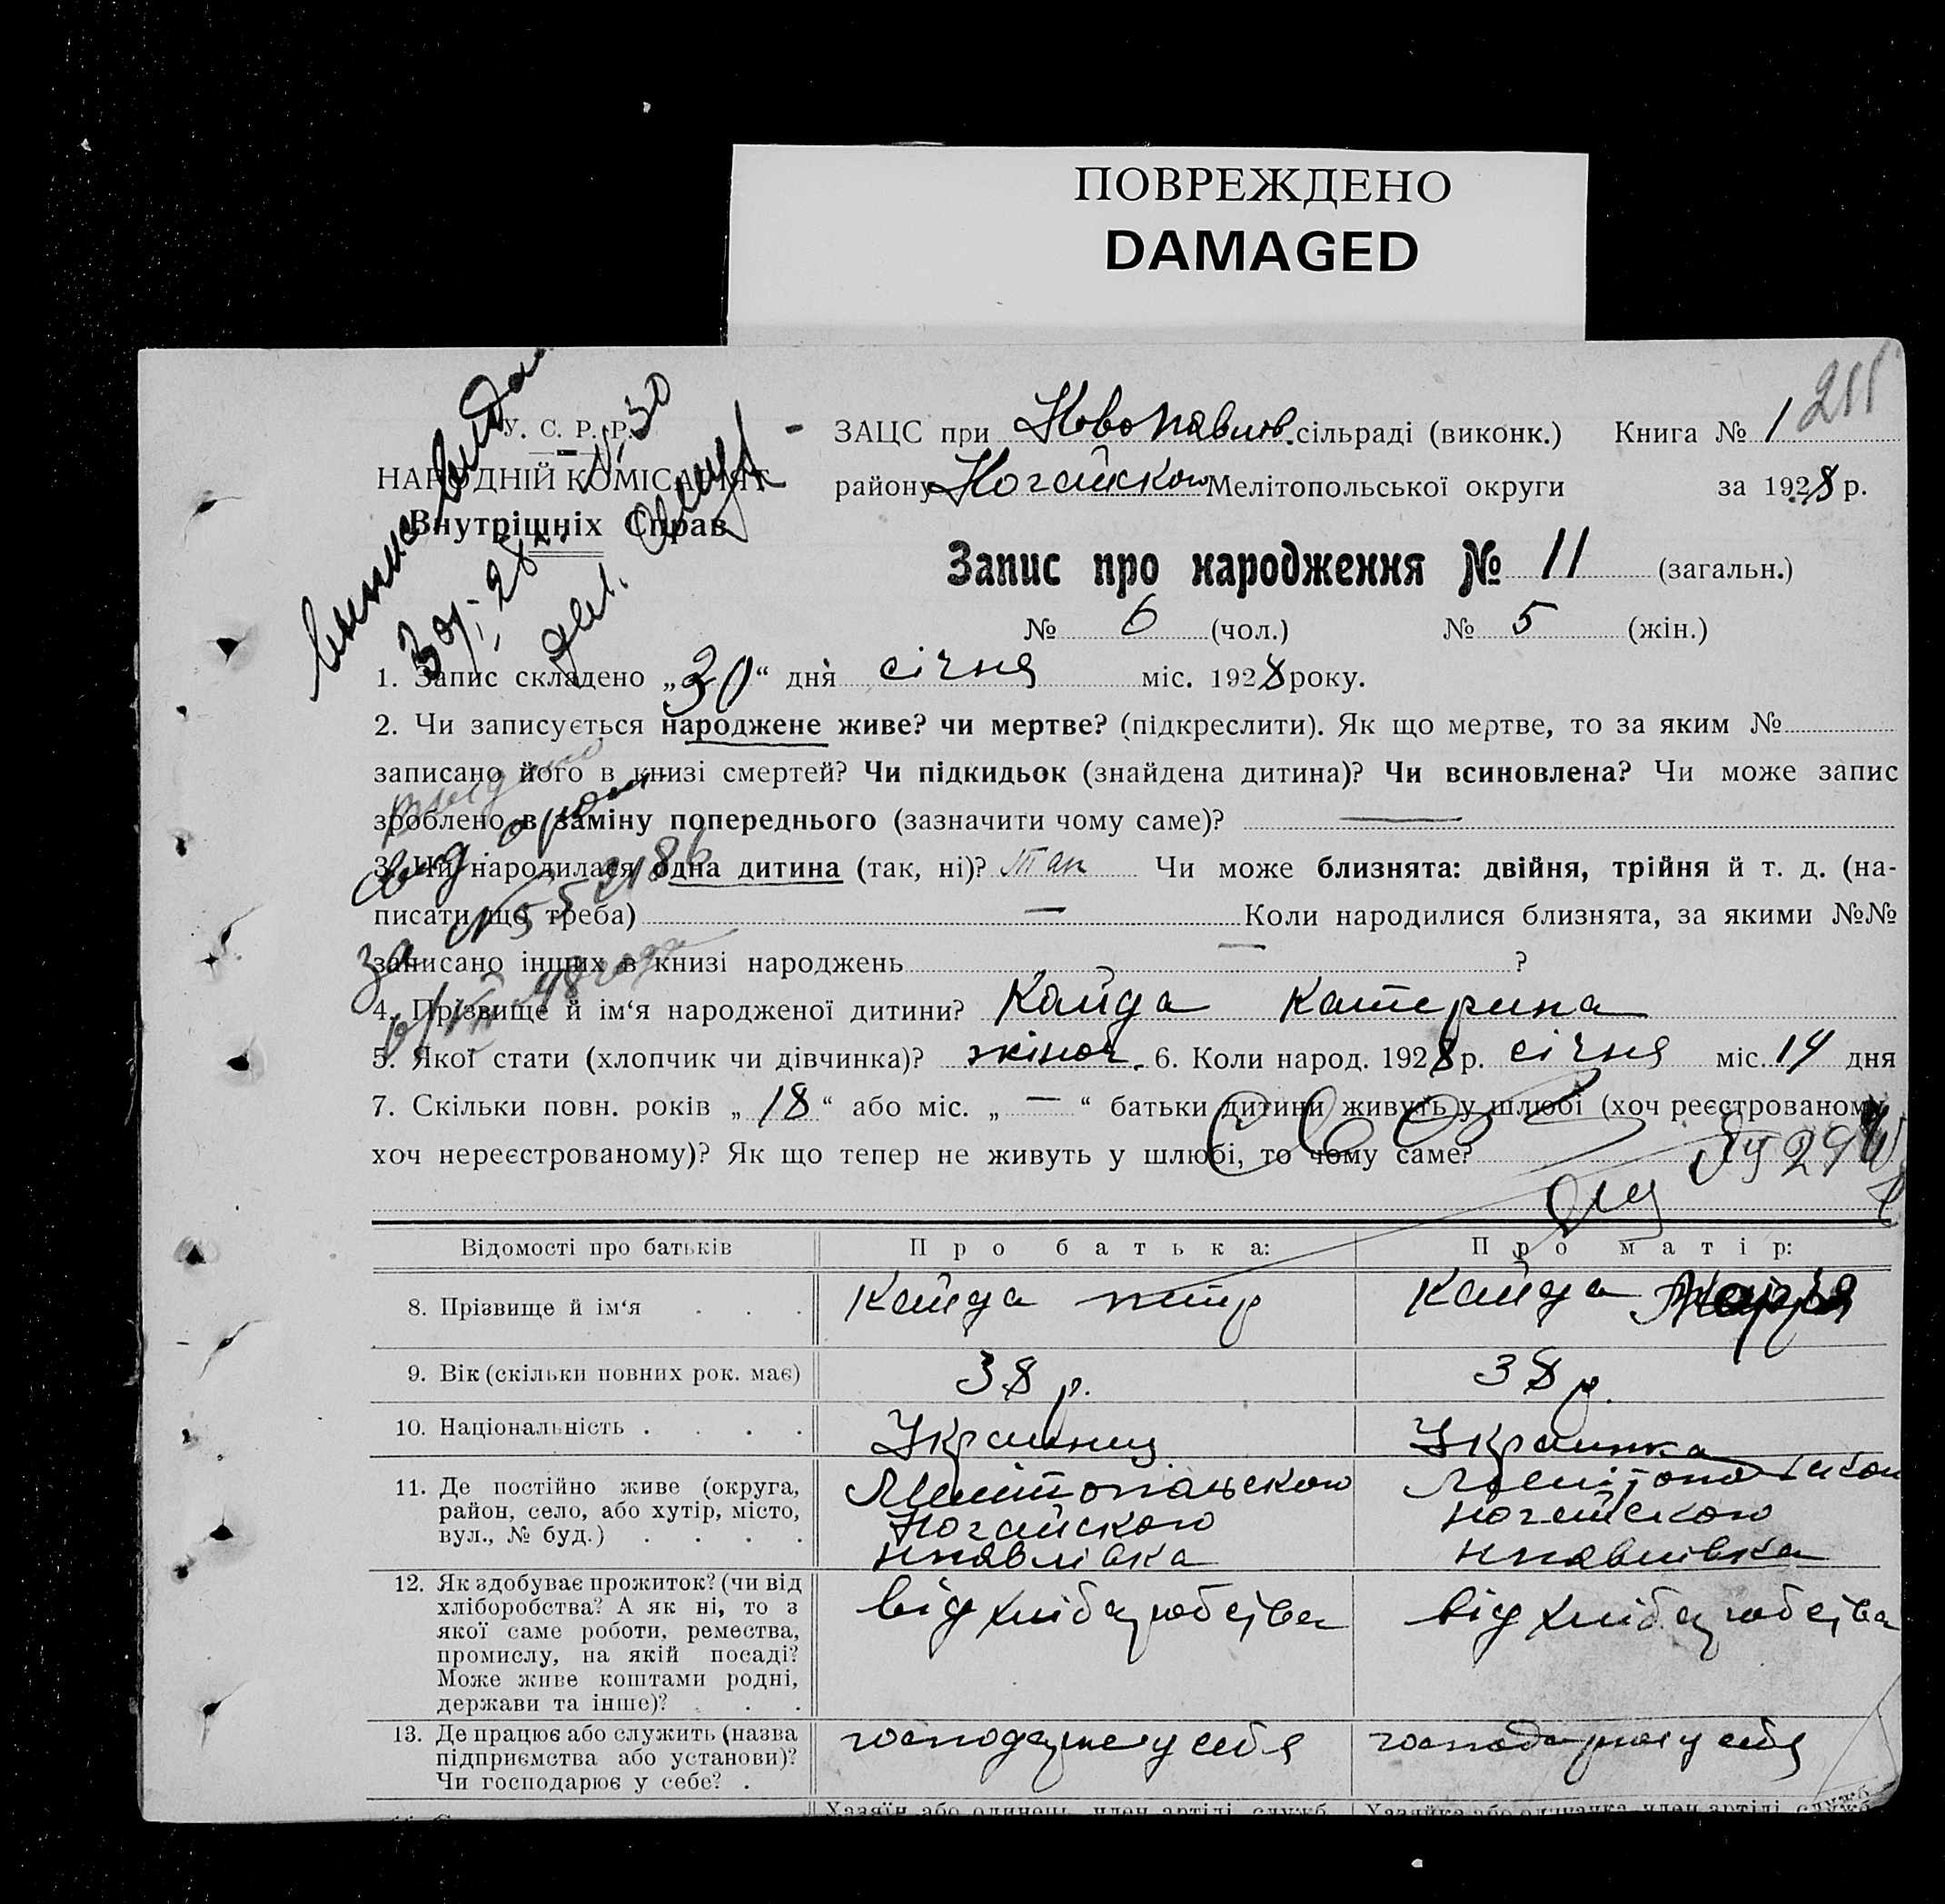 ПОВРЕЖДЕНО
DAMAGED
У. С. Р. Р.
НАРОДНІЙ КОМІСАРІЯТ
Внутрішніх Справ
ЗАЦС при Новопавлов. сільраді (виконк.) Книга № 1 211
району Ногайського Мелітопольської округи за 1928 р.
Запис про народження № 11 (загальн.)
№ 6 (чол.) № 5 (жін.)
1. Запис складено „30“ дня січня міс. 1928 року.
2. Чи записується народжене живе? чи мертве? (підкреслити). Як що мертве, то за яким №
записано його в книзі смертей? Чи підкидьок (знайдена дитина)? Чи всиновлена? Чи може запис
зроблено в заміну попереднього (зазначити чому саме)? —
3. Чи народилася одна дитина (так, ні)? так Чи може близнята: двійня, трійня й т. д. (на-
писати що треба) — Коли народилися близнята, за якими №№
записано інших в книзі народжень — ?
4. Прізвище й ім‘я народженої дитини? Кайда Катерина
5. Якої стати (хлопчик чи дівчинка)? жіноч. 6. Коли народ. 1928 р. січня міс. 14 дня
7. Скільки повн. років „18“ або міс. „—“ батьки дитини живуть у шлюбі (хоч реєстрованому,
хоч нереєстрованому)? Як що тепер не живуть у шлюбі, то чому саме?
Відомості про батьків Про батька: Про матір:
8. Прізвище й ім‘я . . . Кайда Петр Кайда Марія
9. Вік (скільки повних рок. має) 38 р. 38 р.
10. Національність . . . . Українец Українка
11. Де постійно живе (округа,
район, село, або хутір, місто,
вул., № буд.) . . . .
Мелітопольского
Ногайского
Нпавлівка
Ногайского
Нпавлівка
12. Як здобуває прожиток? (чи від
хліборобства? А як ні, то з
якої саме роботи, ремества,
промислу, на якій посаді?
Може живе коштами родні,
держави та інше)? . . .
від хліборобства
від хліборобства
13. Де працює або служить (назва
підприємства або установи)?
Чи господарює у себе? .
господарює у себя
господарює у себя
Хазяїн або одинець, член артілі, служб.
Хазяйка або одиначка, член артілі, служб.